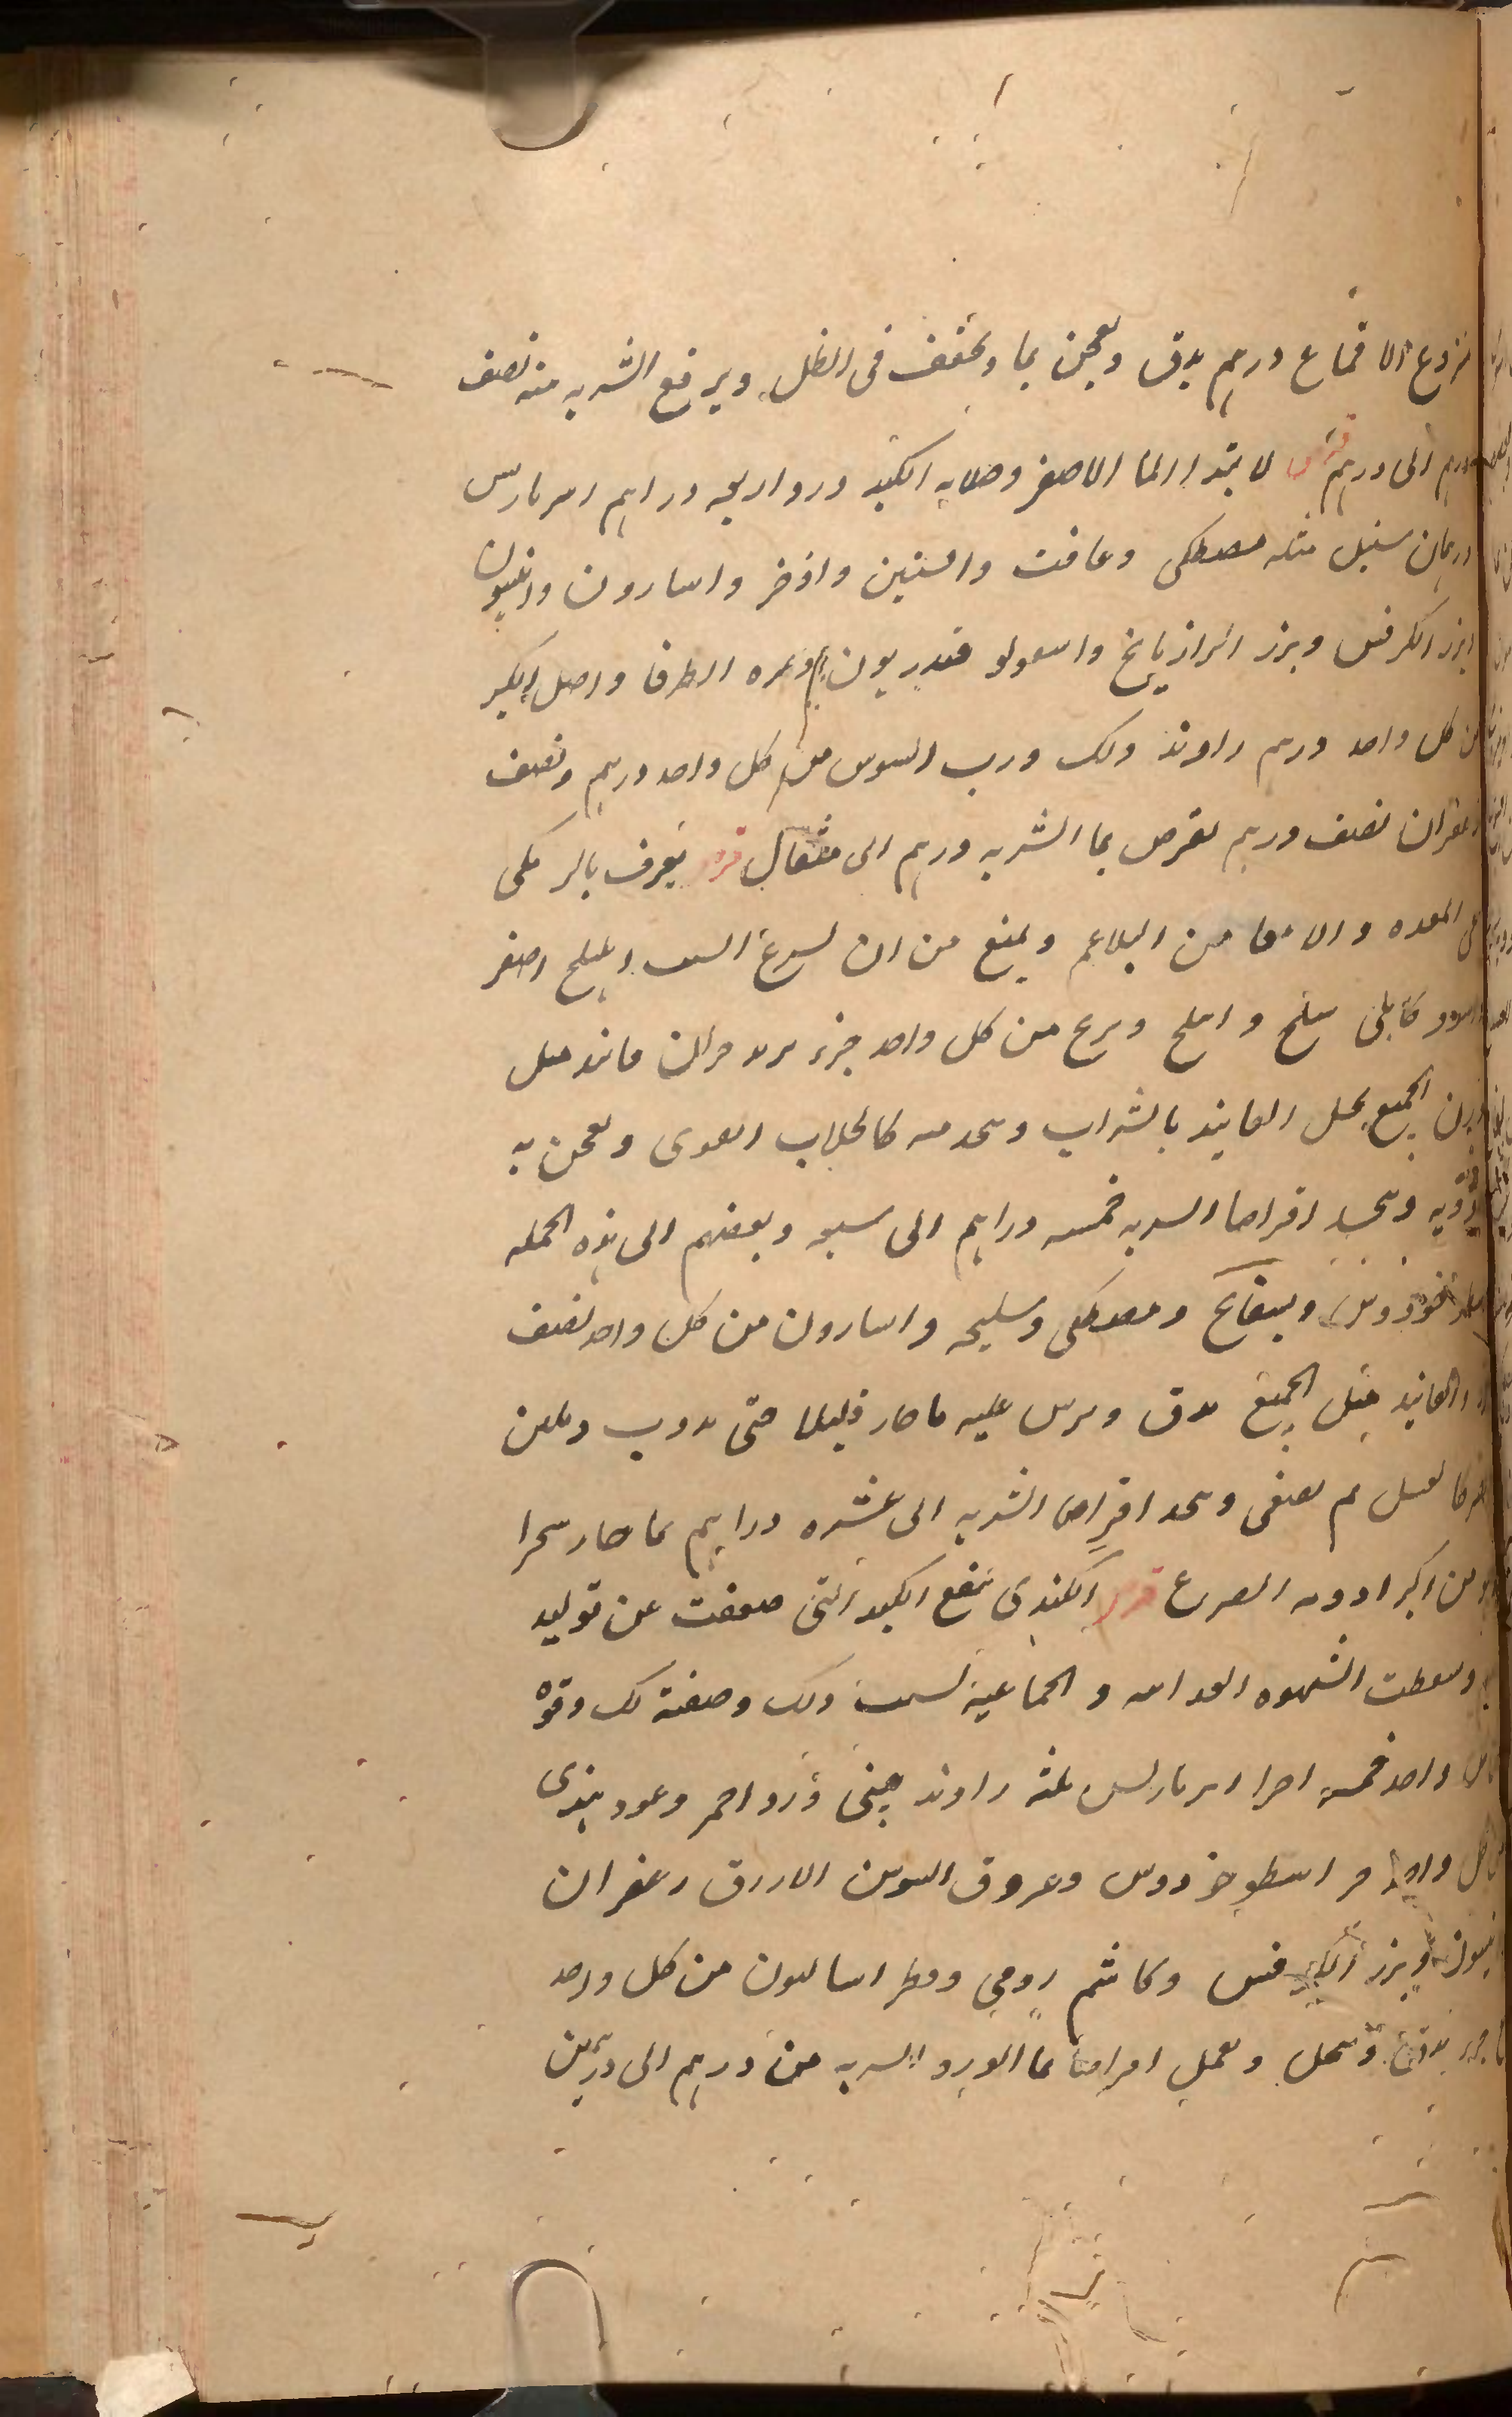 منزوع الاقماع درهم يدق ويعجن بما ويجفف فى الظل ويرفع الشربه منه نصف
درهم الى درهم قرص لابتدا الما الاصفر وصلابه الكبد ورد اربعه دراهم امبربارس
درهمان سنبل مثله مصطكى وغافت وافسنتين واذخر واسارون وانيسون
وبزر الكرفس وبزر الرازيانج واسقولوقندريون وثمره الطرفا واصل الكبر
من كل واحد درهم راوند ولك ورب السوس من كل واحد درهم ونصف
زعفران نصف درهم يقرص بما الشربه درهم الى مثقال قرص يعرف بالرمكى
المعده والامعا من البلاغم ويمنع من ان يسرع الشيب اهليلج اصفر
واسود كابلى بليلج واملج وبرنج من كل واحد جزء تربد جزان فانيد مثل
وزن الجميع يحل الفانيد بالشراب كالجلاب القوى ويعجن به
الادويه ويتخذ اقراصا الشربه خمسه دراهم الى سبعه وبعضهم الى هذه الجمله
اسطوخودوس وبسفايج ومصطكى وسليخه واسارون من كل واحد نصف
والفانيد مثل الجميع يدق ويرش عليه ما حار قليلا حتى يذوب ويلين
كالعسل ثم يصفى ويتخذ اقراص الشربه الى عشره دراهم بما حار سحرا
من اكبر ادويه الصرع قرص الكندى ينفع الكبد التى ضعفت عن توليد
وسقطت الشهوه الغذاييه والجماعيه لسبب ذلك وصفته لك وفوة
واحد خمسه اجزا امبربارس ثلثه راوند صينى ورد احمر وعود هندى
من كل واحد اسطوخودوس وعروق السوس الازرق زعفران
انيسون وبزر الكرفس وكاشم رومى وفطراساليون من كل واحد
جزء يدق وينخل ويعمل اقراصا بما الورد الشربه من درهم الى درهمين